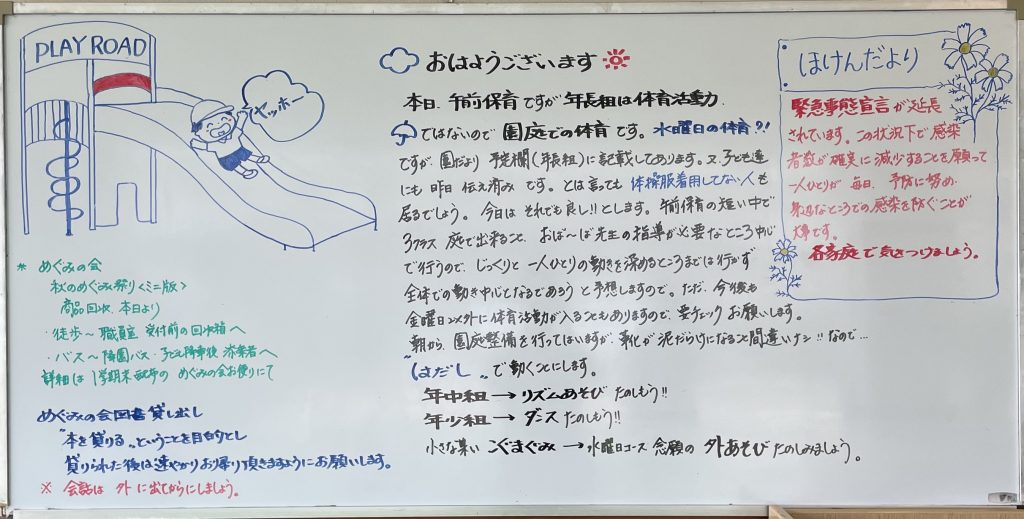 PLAY ROAD
ヤッホー
* めぐみの会
秋のめぐみ祭り<ミニ版>
商品回収 本日より
・徒歩～職員室 受付前の回収箱へ
・バス～降園バス・子ども降車後 添乗者へ
詳細は1学期末配布の めぐみの会お便りにて
めぐみの会図書貸し出し
"本を貸りる"ということを目的とし
貸りられた後は速やかりお帰り頂きますようにお願いします。
※ 会話は 外に出てからにしましょう。
おはようございます
本日、午前保育ですが 年長組は体育活動
ではないので 園庭での体育です。水曜日の体育?!
ですが、園だより 予定欄(年長組)に記載してあります。又、子ども達
にも 昨日 伝え済み です。とは言っても 体操服着用してない人も
居るでしょう。今日は それでも良し!!とします。午前保育の短い中で
3クラス 庭で出来ること、おば～ば先生の指導が必要なところ中心
で行うので、じっくりと 一人ひとりの動きを深めるところまでは行かず
全体での動き中心となるであろうと予想しますので。ただ、今後も
金曜日以外に体育活動が入ることもありますので、要チェック お願いします。
朝から、園庭整備を行ってはいますが、靴が泥だらけになること間違いナシ!!なので…
"はだし"で動くことにします。
年中組→リズムあそび たのしもう!!
年少組→ダンス たのしもう!!
小さな集い こぐまぐみ→水曜日コース 念願の 外あそび たのしみましょう。
ほけんだより
緊急事態宣言が延長
されています。この状況下で感染
者数が確実に減少することを願って
一人ひとりが 毎日、予防に努め、
身近なところでの感染を防ぐことが
大事です。
各家庭で気をつけましょう。